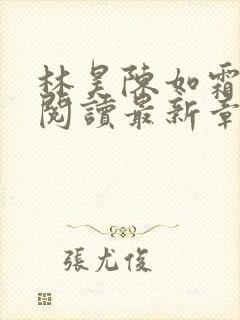 林昊陳如霜
閱讀最新章
張尤俊